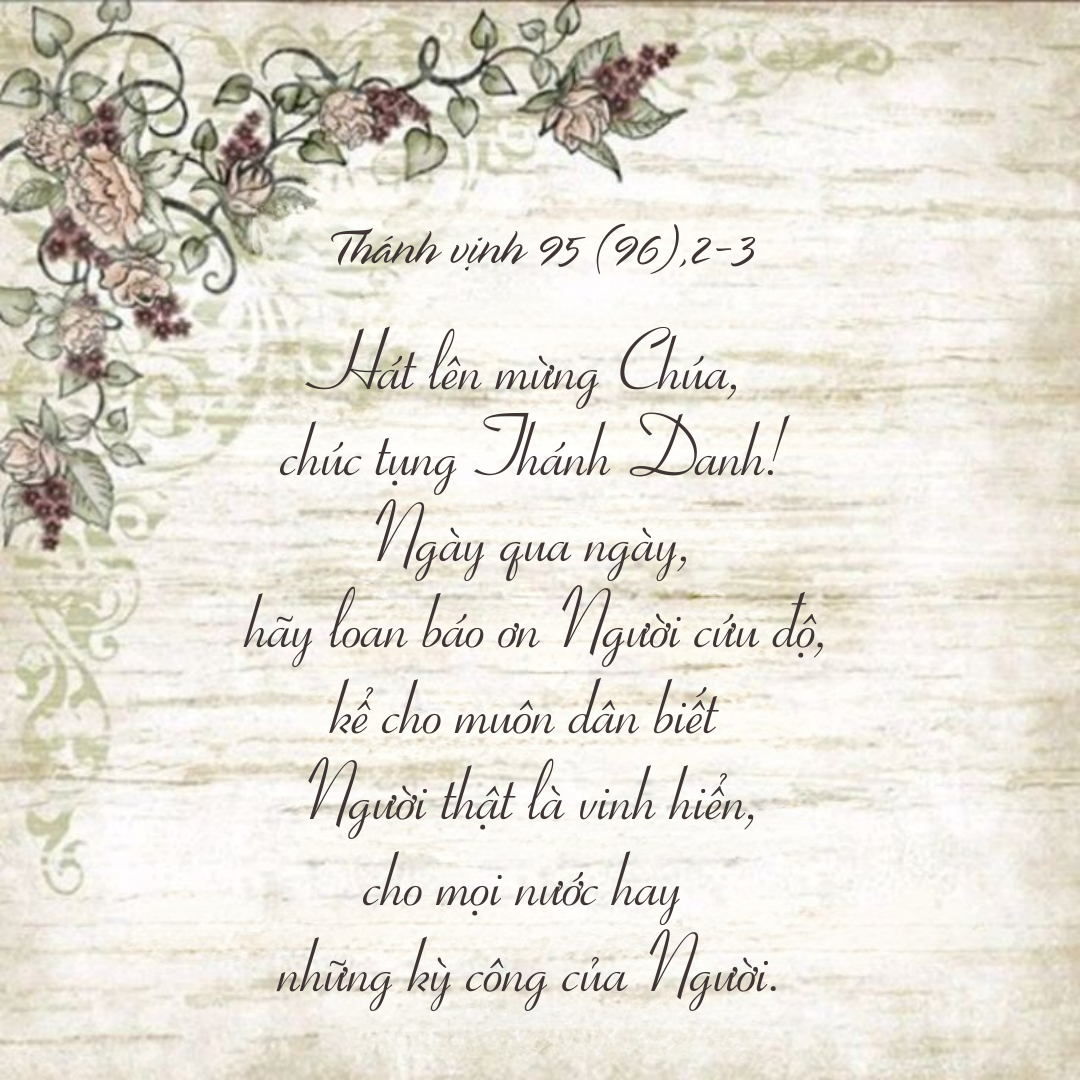 Thánh vịnh 95 (96),2-3
Hát lên mừng Chúa,
chúc tụng Thánh Danh!
Ngày qua ngày,
hãy loan báo ơn Người cứu độ,
kể cho muôn dân biết
Người thật là vinh hiển,
cho mọi nước hay
những kỳ công của Người.